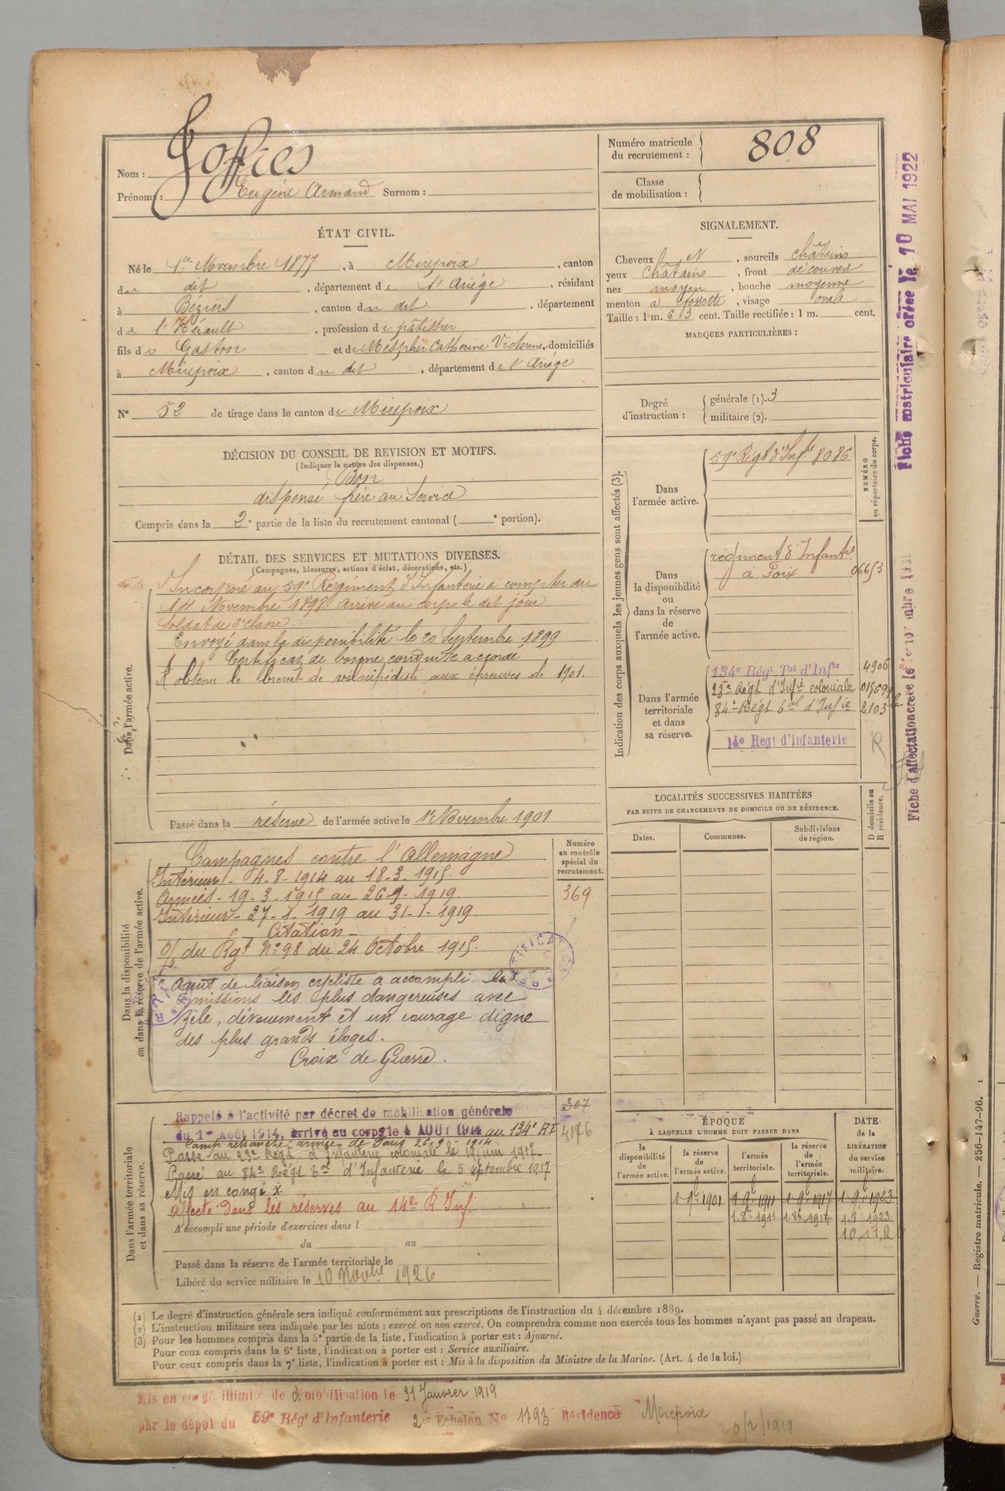 Nom : Joffres
Prénoms : Eugène Armand Surnom :
Numéro matricule du recrutement : 808
Classe de mobilisation :
ÉTAT CIVIL.
Né le 1er Novembre 1877, à Mirepoix, canton
du dit, département de l'Ariège, résidant
à Béziers, canton du dit, département
de l'Hérault, profession de pâtissier
fils de Gaston et de Mespher Catherine Victorine, domiciliés
à Mirepoix, canton du dit, département de l'Ariège
N° 52 de tirage dans le canton de Mirepoix
SIGNALEMENT.
Cheveux et, sourcils châtains
yeux châtains, front découvert
nez moyen, bouche moyenne
menton à fossette, visage ovale
Taille : 1 m. 63 cent. Taille rectifiée : 1 m. cent.
MARQUES PARTICULIÈRES :
Degré d'instruction :
générale (1). 3
militaire (2).
DÉCISION DU CONSEIL DE REVISION ET MOTIFS.
(Indiquer la nature des dispenses.)
Bon
dispensé frère au Service
Compris dans la 2e partie de la liste du recrutement cantonal ( e portion).
DÉTAIL DES SERVICES ET MUTATIONS DIVERSES.
(Campagnes, blessures, actions d'éclat, décorations, etc.)
Dans l'armée active.
Incorporé au 59e Régiment d'Infanterie à compter du
14 Novembre 1898 Arrivé au corps le dit jour
Soldat de 2e classe.
Envoyé dans la disponibilité le 20 Septembre 1899
Certificat de bonne conduite accordé
A obtenu le brevet de vélocipédiste aux épreuves de 1901.
Passé dans la réserve de l'armée active le 1er Novembre 1901
Indication des corps auxquels les jeunes gens sont affectés (3).
NUMÉRO au répertoire du corps.
Dans l'armée active.
59e Régt d'Infie 8086
Dans la disponibilité ou dans la réserve de l'armée active.
régiment d'Infantie
à Foix 06653
Dans l'armée territoriale et dans sa réserve.
134e Régt Tal d'Infie 4906
23e Régt d'Infie coloniale
84e Régt Tal d'Infie 2103
14e Régt d'Infanterie R
Dans la disponibilité ou dans la réserve de l'armée active.
Numéro au contrôle spécial du recrutement.
369
Campagnes contre l'Allemagne
Intérieur - 4-8-1914 au 18-3-1915.
Armées - 19-3-1915 au 26-1-1919
Intérieur - 27-1-1919 au 31-1-1919.
Citation
O/ du Rgt N° 98 du 24 Octobre 1915.
Agent de liaison cycliste a accompli les
missions les plus dangereuses avec
zèle, dévouement et un courage digne
des plus grands éloges.
Croix de Guerre.
RECTIFICATION
LOCALITÉS SUCCESSIVES HABITÉES
PAR SUITE DE CHANGEMENTS DE DOMICILE OU DE RÉSIDENCE.
Dates.
Communes.
Subdivisions de région.
D domicile ou R résidence.
Dans l'armée territoriale et dans sa réserve.
307
4176
Rappelé à l'activité par décret de mobilisation générale
du 1er Août 1914, arrivé au corps le 4 AOUT 1914 au 134e RI
Passé au 23e Régt d'Infanterie coloniale le 19 juin 1917.
Passé au 84e Régt Tal d'Infanterie le 5 septembre 1917
Mis en congé x
Affecté dans les réserves au 14e R. Inf.
A accompli une période d'exercices dans l
du au
Passé dans la réserve de l'armée territoriale le
Libéré du service militaire le 10 Novbre 1926
ÉPOQUE
À LAQUELLE L'HOMME DOIT PASSER DANS
la disponibilité de l'armée active.
la réserve de l'armée active.
l'armée territoriale.
la réserve de l'armée territoriale.
DATE de la LIBÉRATION du service militaire.
1-9-1901 1-9-1911 1-9-1917 1-9-1923
1-8-1911 1-8-1917 1-8-1923
(1) Le degré d'instruction générale sera indiqué conformément aux prescriptions de l'instruction du 4 décembre 1889.
(2) L'instruction militaire sera indiquée par les mots : exercé ou non exercé. On comprendra comme non exercés tous les hommes n'ayant pas passé au drapeau.
(3) Pour les hommes compris dans la 5e partie de la liste, l'indication à porter est : Ajourné.
Pour ceux compris dans la 6e liste, l'indication à porter est : Service auxiliaire.
Pour ceux compris dans la 7e liste, l'indication à porter est : Mis à la disposition du Ministre de la Marine. (Art. 4 de la loi.)
Mis en congé illimité de démobilisation le 31 Janvier 1919
par le dépôt du 59e Régt d'Infanterie 2e Echelon No 1793 Résidence Mirepoix
Fiche matriculaire créée le 10 MAI 1922
Fiche d'affectation créée le
Guerre. — Registre matricule. — 256-147-96. 1